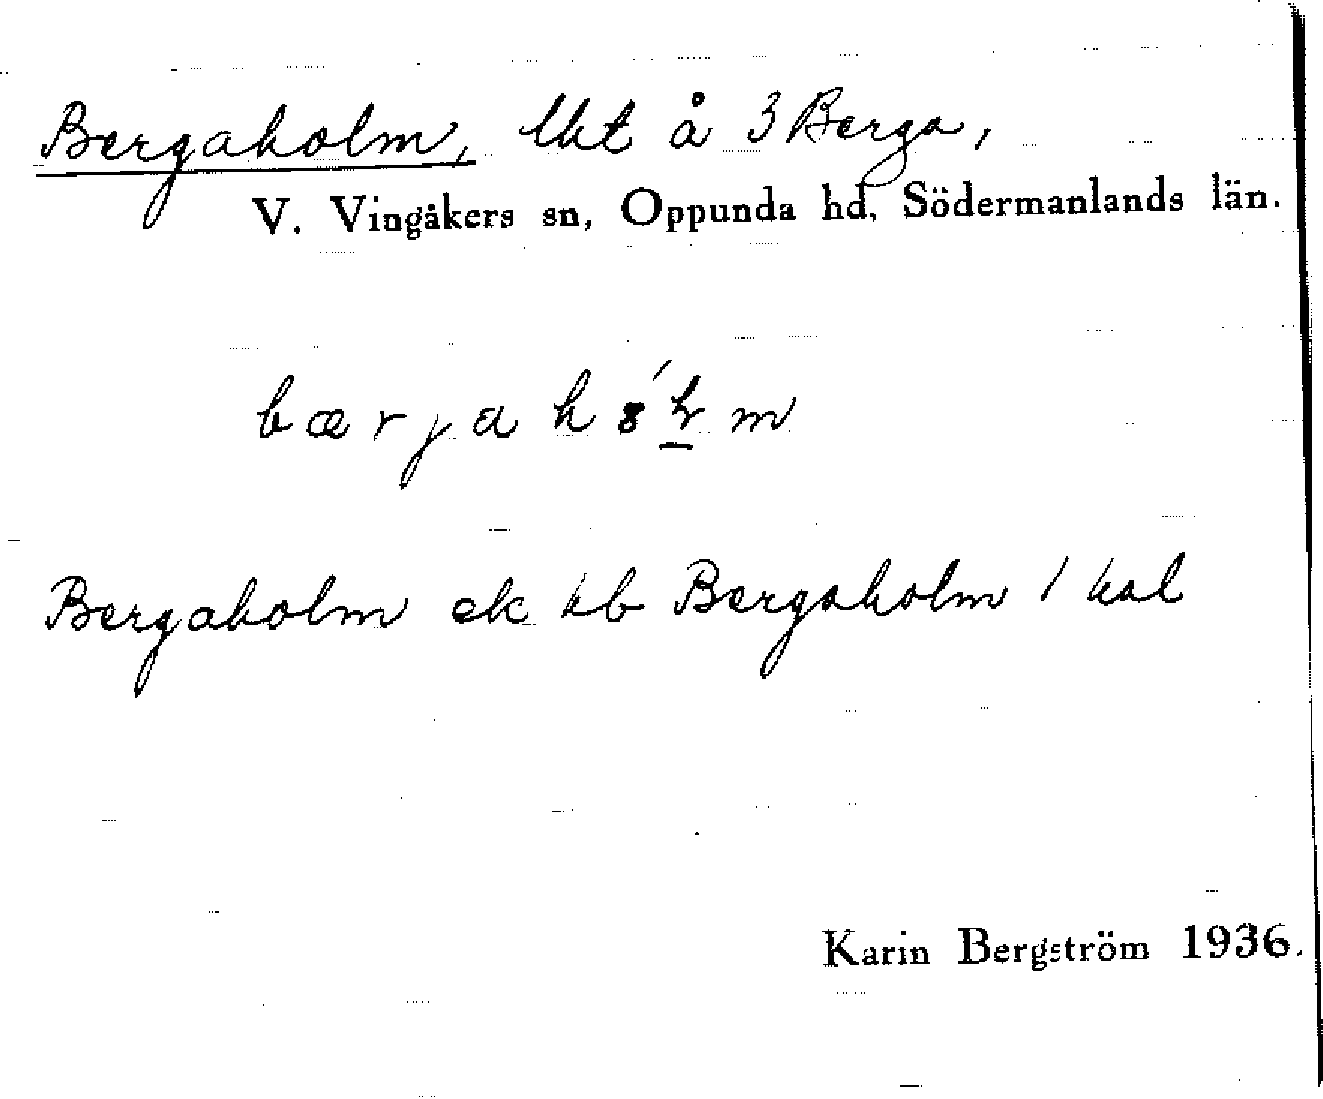 Bergaholm, lht å 3 Berga,
V. Vingåkers sn, Oppunda hd, Södermanlands län.
bærja
Bergaholm ek kb Bergaholm 1 kal
Karin Bergström 1936.